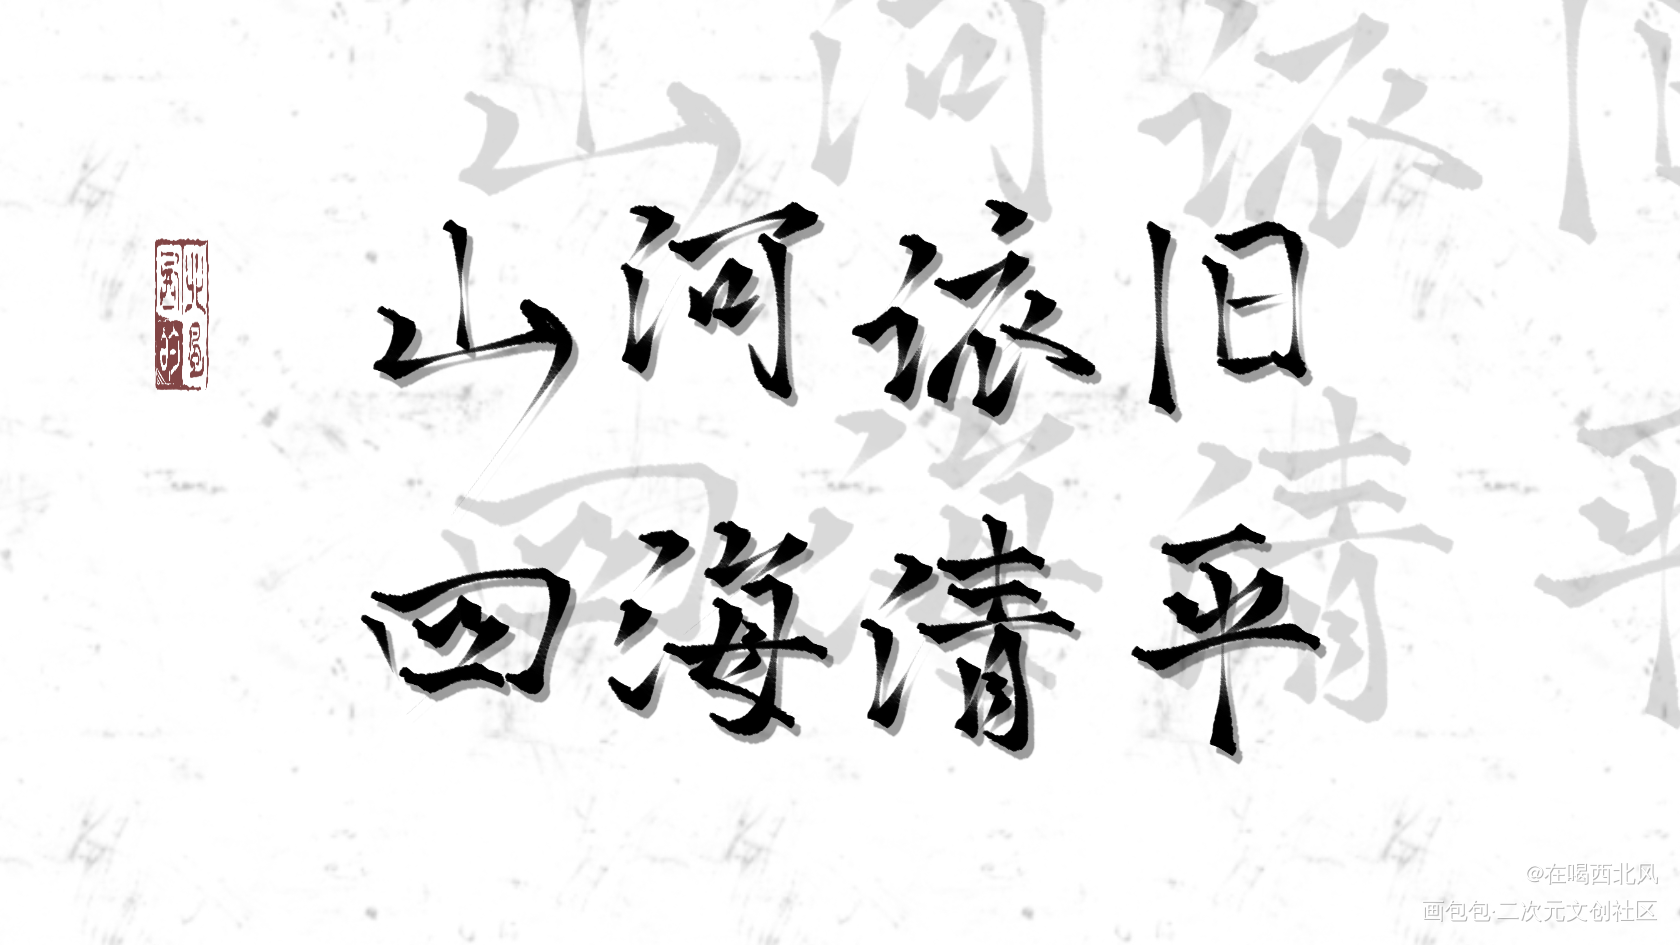 山河依旧
四海清平
@在喝西北风
画包包·二次元文创社区